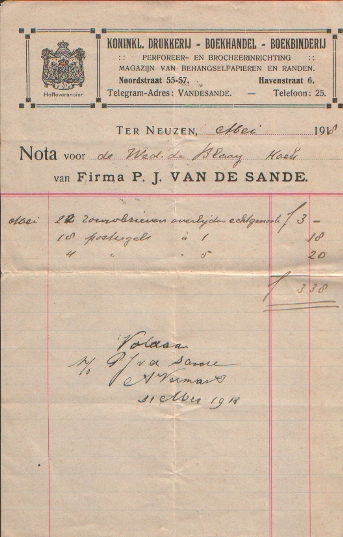 KONINKL. DRUKKERIJ - BOEKHANDEL - BOEKBINDERIJ
:: PERFOREER- EN BROCHEERINRICHTING ::
MAGAZIJN VAN BEHANGSELPAPIEREN EN RANDEN.
Noordstraat 55-57. Havenstraat 6.
Telegram-Adres: VANDESANDE. — Telefoon: 25.
Hofleverancier
TER NEUZEN, Mei 1918
Nota voor de Wed. de Hoek
van Firma P. J. VAN DE SANDE.
Mei 22 rouwbrieven overlijden echtgenoot f 3 -
18 postzegels à 1 18
4 " " 5 20
f 3 38
Voldaan
P J v d Sande
31 Mei 1918